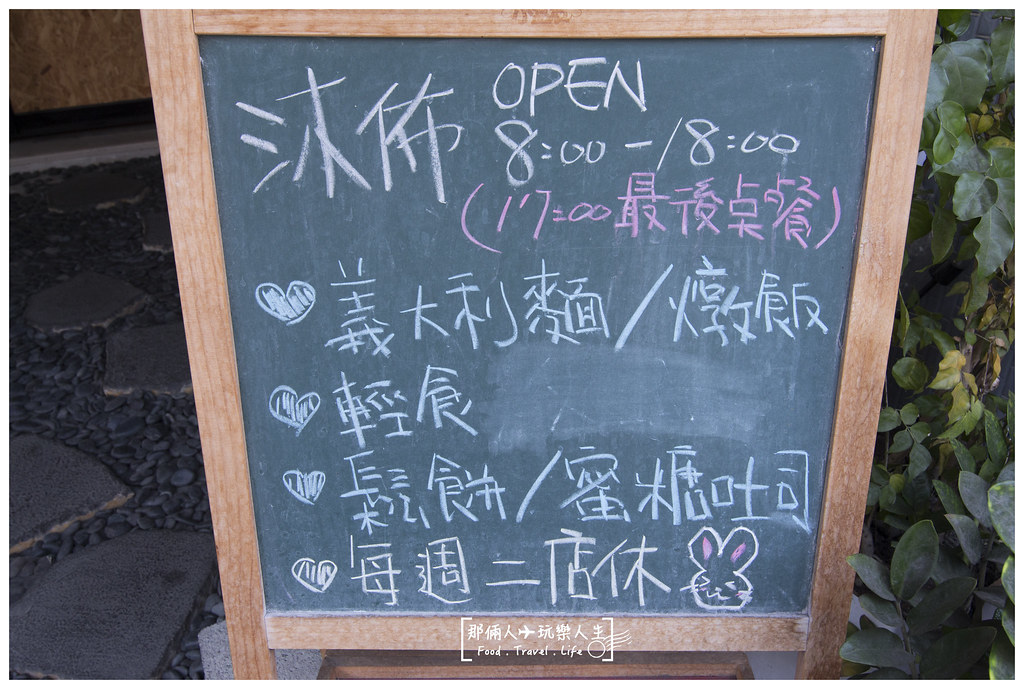 沐佈 OPEN
8:00-18:00
(17:00最後點餐)
義大利麵/燉飯
輕食
鬆餅/蜜糖吐司
每週二店休
那倆人玩樂人生
Food . Travel . Life